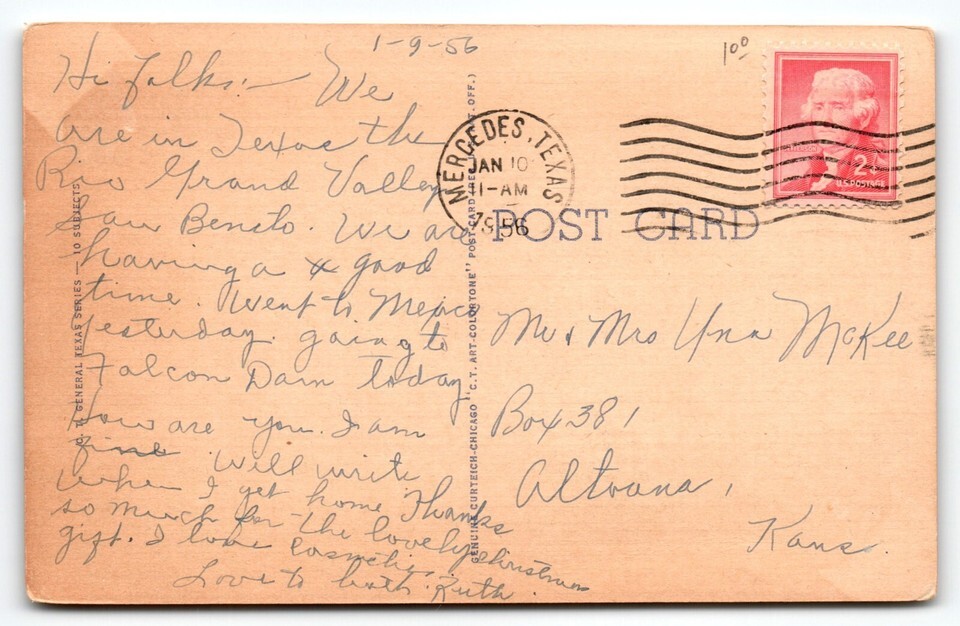 1-9-56
Hi folks:- We
are in Texas the
Rio Grand Valley
San Benito. We are
having a good
time. Went to Mexico
yesterday. going to
Falcon Dam today
How are you. I am
fine will write
when I get home Thanks
so much for the lovely christmas
gift. I love cosmetics.
Love to both. Ruth.
C. T. GENERAL TEXAS SERIES — 10 SUBJECTS
GENUINE CURTEICH-CHICAGO "C.T. ART-COLORTONE" POST CARD (REG. U.S. PAT. OFF.)
1 00
MERCEDES, TEXAS
JAN 10
11-AM
1956
2¢
U.S. POSTAGE
POST CARD
Mr & Mrs Una McKee
Box 381
Altoona,
Kans.